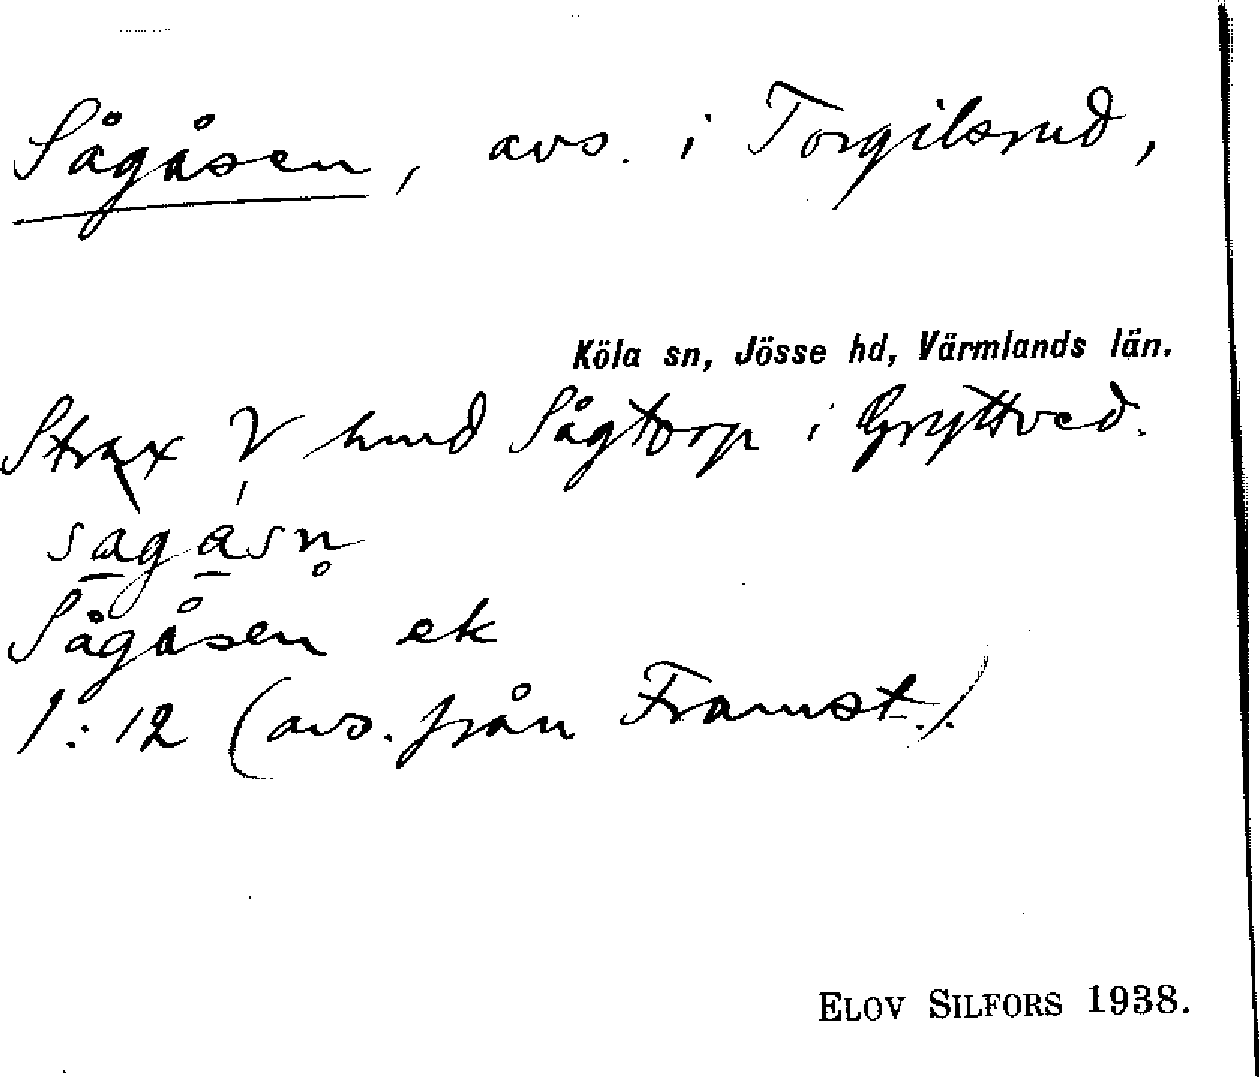 Sågåsen, avs. i Torgilsrud,
Köla sn, Jösse hd, Värmlands län.
Strax V hmd Sågtorp i Gryttved.
sàgásn̥
Sågåsen ek
1:12 (avs. från Framst.)
ELOV SILFORS 1938.